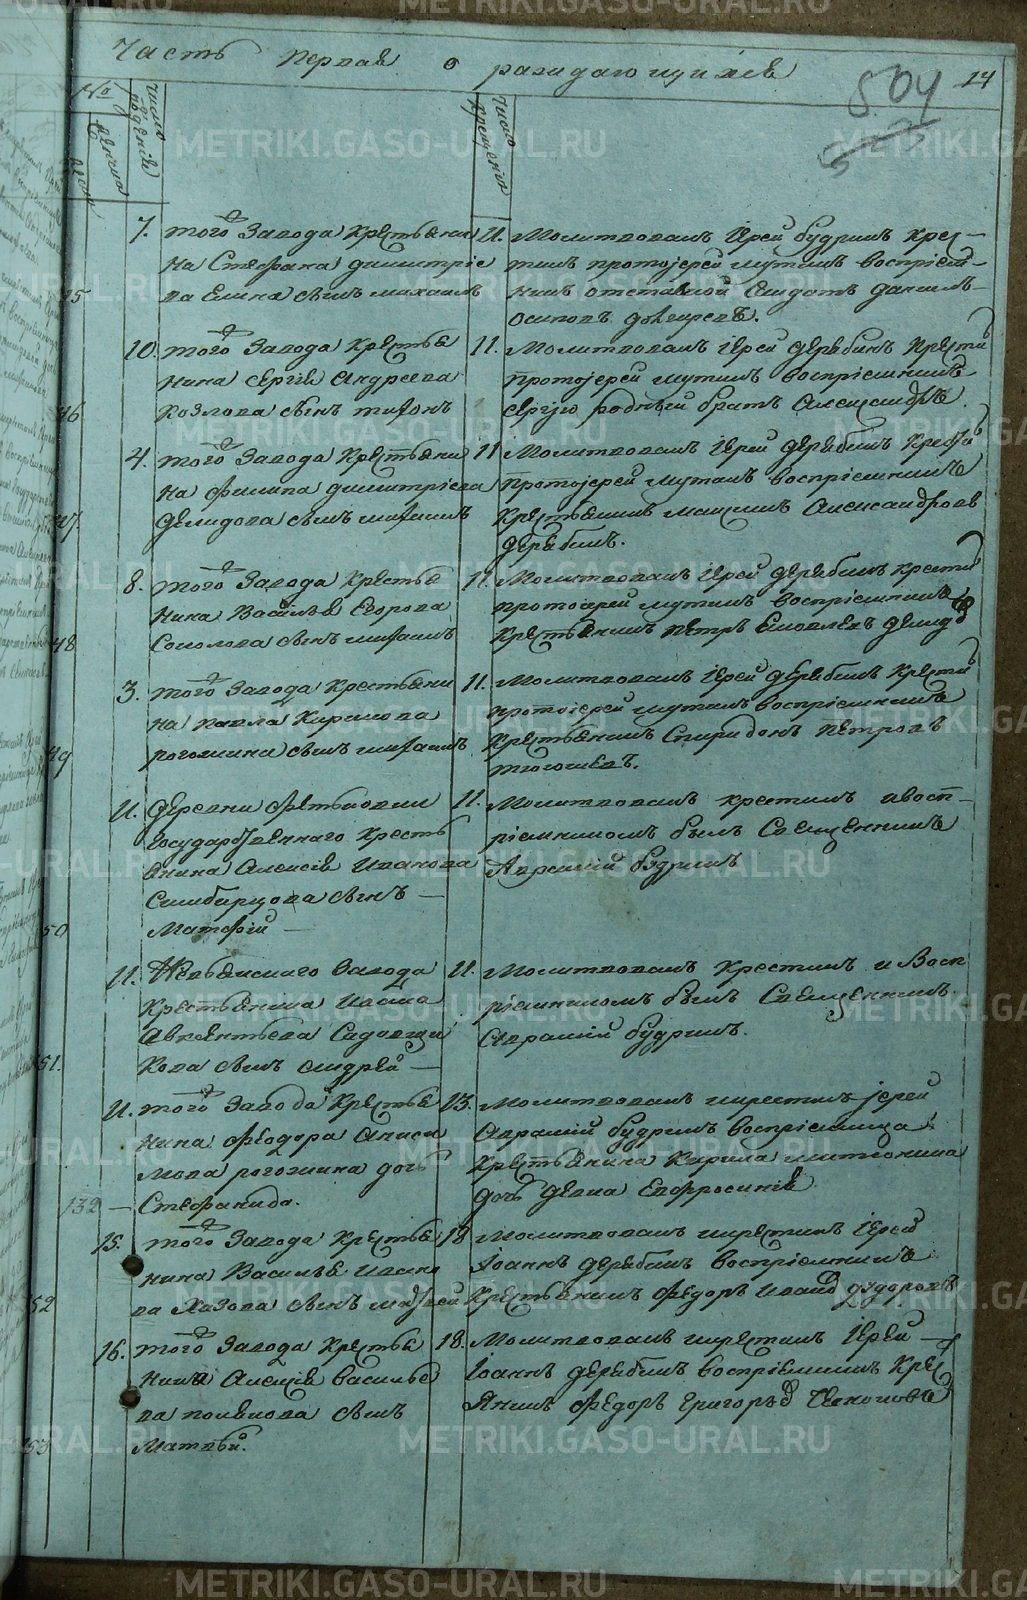 Часть первая о раждающихся
504
14
№
Число рождения
Число крещения
7. того Завода Крестьяни
на Стефана Димитріе
ва сынъ михаилъ
11. Молитвовалъ Іерей будринъ крес-
тилъ протоіерей воспріем-
никъ отставной Солдатъ Данилъ
Осиповъ
45
10. того Завода Крестья
нина Сергія Андреева
Козлова сынъ тихонъ
11. Молитвовалъ Іерей Дерябинъ Крести
протоіерей воспріемникъ
Сергію родный братъ Александръ
46
4. того Завода Крестьяни
на Филипа Димитріева
Демидова сынъ михаилъ
11 Молитвовалъ Іерей Дерябинъ Крести
протоіерей воспріемникъ
Крестьянинъ Александровъ
Дерябинъ.
47
8. того Завода Крестья
нина Василья Егорова
Соколова сынъ михаилъ
11. Молитвовалъ Іерей Дерябинъ крести
протоіерей воспріемникъ
Крестьянинъ Петръ Яковлевъ Демид
48
3. того Завода Крестьяни
на Павла Кирилова
рогожина сынъ михаилъ
11. Молитвовалъ Іерей Дерябинъ Крести
протоіерей воспріемникъ
Крестьянинъ Спиридонъ Петровъ
49
11. Деревни
Государственнаго Кресть
янина Алексія Иванова
Симбирцова сынъ —
Матфій —
11. Молитвовалъ крестилъ ивосп-
ріемникомъ былъ Священникъ
Аврамій будринъ
50
11. Завода
Крестьянина Ивана
Авксентьева Садовщи
кова сынъ андрей —
11. Молитвовалъ Крестилъ и Восп
ріемникомъ былъ Священникъ
Аврамій будринъ.
51.
11. того Завода Крестья
нина Феодора Аниси
мова рогожина дочь
Стефанида.
13. Молитвовалъ икрестилъ іерей
Аврамій будринъ воспріемница
Крестьянина Кирила
дочь девка Евфросинія
132
15. того Завода Крестья
нина Василья Ивано
ва Хазова сынъ матфей
18 Молитвовалъ икрестилъ Іерей
Іоаннъ Дерябинъ воспріемникъ
Крестьянинъ Федоръ Иванов
52
16. того Завода Крестья
нина Алексія Василье
ва полякова сынъ
Матвей.
18. Молитвовалъ икрестилъ Іерей
Іоаннъ Дерябинъ воспріемникъ Крес
янинъ Федоръ Григорьев
53
METRIKI.GASO-URAL.RU